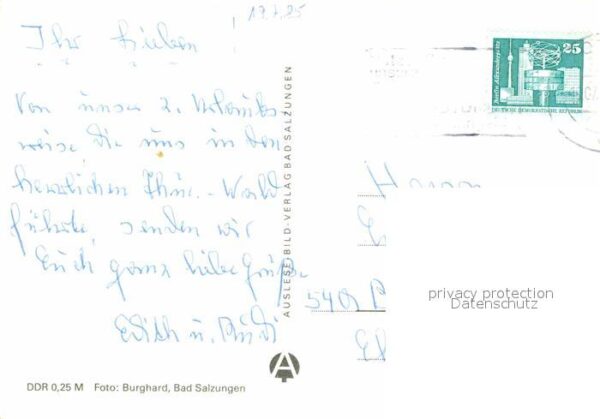 19.7.85
Ihr Lieben!
Von unser 2. Urlaubs-
reise die uns in den
herrlichen Thür.-Wald
führte, senden wir
Euch ganz liebe Grüße
Edith u. Rudi
AUSLESE-BILD-VERLAG BAD SALZUNGEN
25
Berlin, Alexanderplatz
DEUTSCHE DEMOKRATISCHE REPUBLIK
privacy protection
Datenschutz
DDR 0,25 M Foto: Burghard, Bad Salzungen